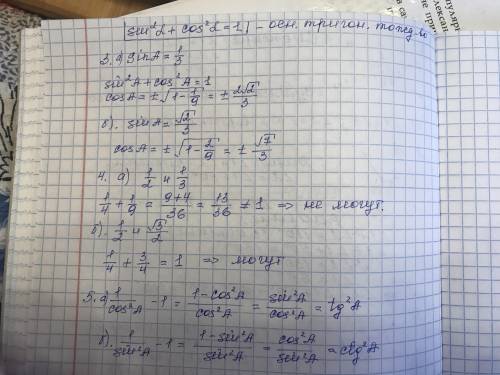 sin²α + cos²α = 1 - осн. тригон. тожд-во
3. а) sin A = 1/3
sin²A + cos²A = 1
cos A = ±√(1 - 1/9) = ± 2√2/3
б). sin A = √2/3
cos A = ±√(1 - 2/9) = ± √7/3
4. а) 1/2 и 1/3
1/4 + 1/9 = (9+4)/36 = 13/36 ≠ 1 => не могут.
б). 1/2 и √3/2
1/4 + 3/4 = 1 => могут
5. а) 1/cos²A - 1 = (1-cos²A)/cos²A = sin²A/cos²A = tg²A
б). 1/sin²A - 1 = (1-sin²A)/sin²A = cos²A/sin²A = ctg²A